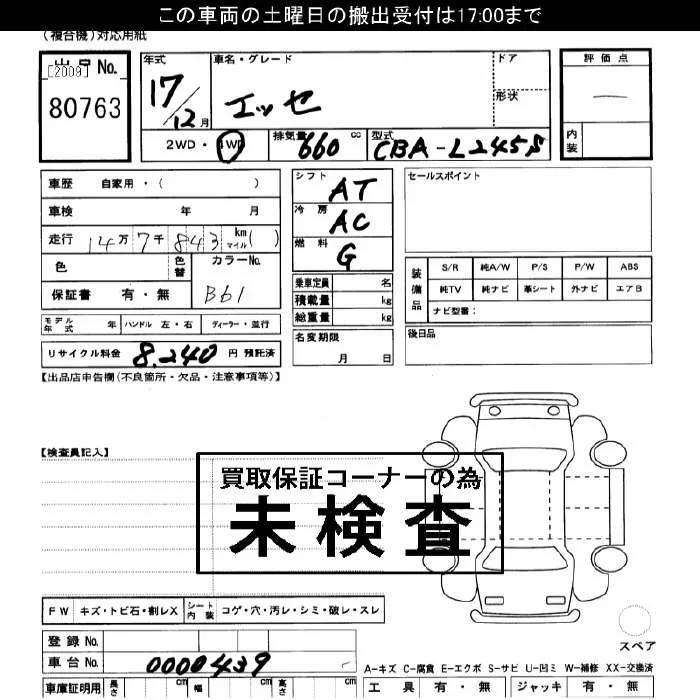 この車両の土曜日の搬出受付は17:00まで
(複合機)対応用紙
出品No.
[2009]
80763
年式
17/12月
車名・グレード
エッセ
ドア
形状
評価点
内装
2WD・4WD
排気量 660 cc
型式 CBA-L245S
車歴 自家用・( )
車検 年 月
走行 14万7千843 km マイル( )
色
色替
カラーNo.
B61
保証書 有・無
シフト AT
冷房 AC
燃料 G
乗車定員 名
積載量 kg
総重量 kg
セールスポイント
装備品
S/R 純A/W P/S P/W ABS
純TV 純ナビ 革シート 外ナビ エアB
ナビ型番:
モデル年式 年 ハンドル 左・右 ディーラー・並行
名変期限
月 日
後日品
リサイクル料金 8,240 円 預託済
【出品店申告欄(不良箇所・欠品・注意事項等)】
【検査員記入】
買取保証コーナーの為
未検査
FW キズ・トビ石・割レX
シート内装 コゲ・穴・汚レ・シミ・破レ・スレ
登録No.
車台No. 0000439
スペア
A-キズ C-腐食 E-エクボ S-サビ U-凹ミ W-補修 XX-交換済
車庫証明用 長さ cm 幅 cm 高さ cm
工具 有・無 ジャッキ 有・無